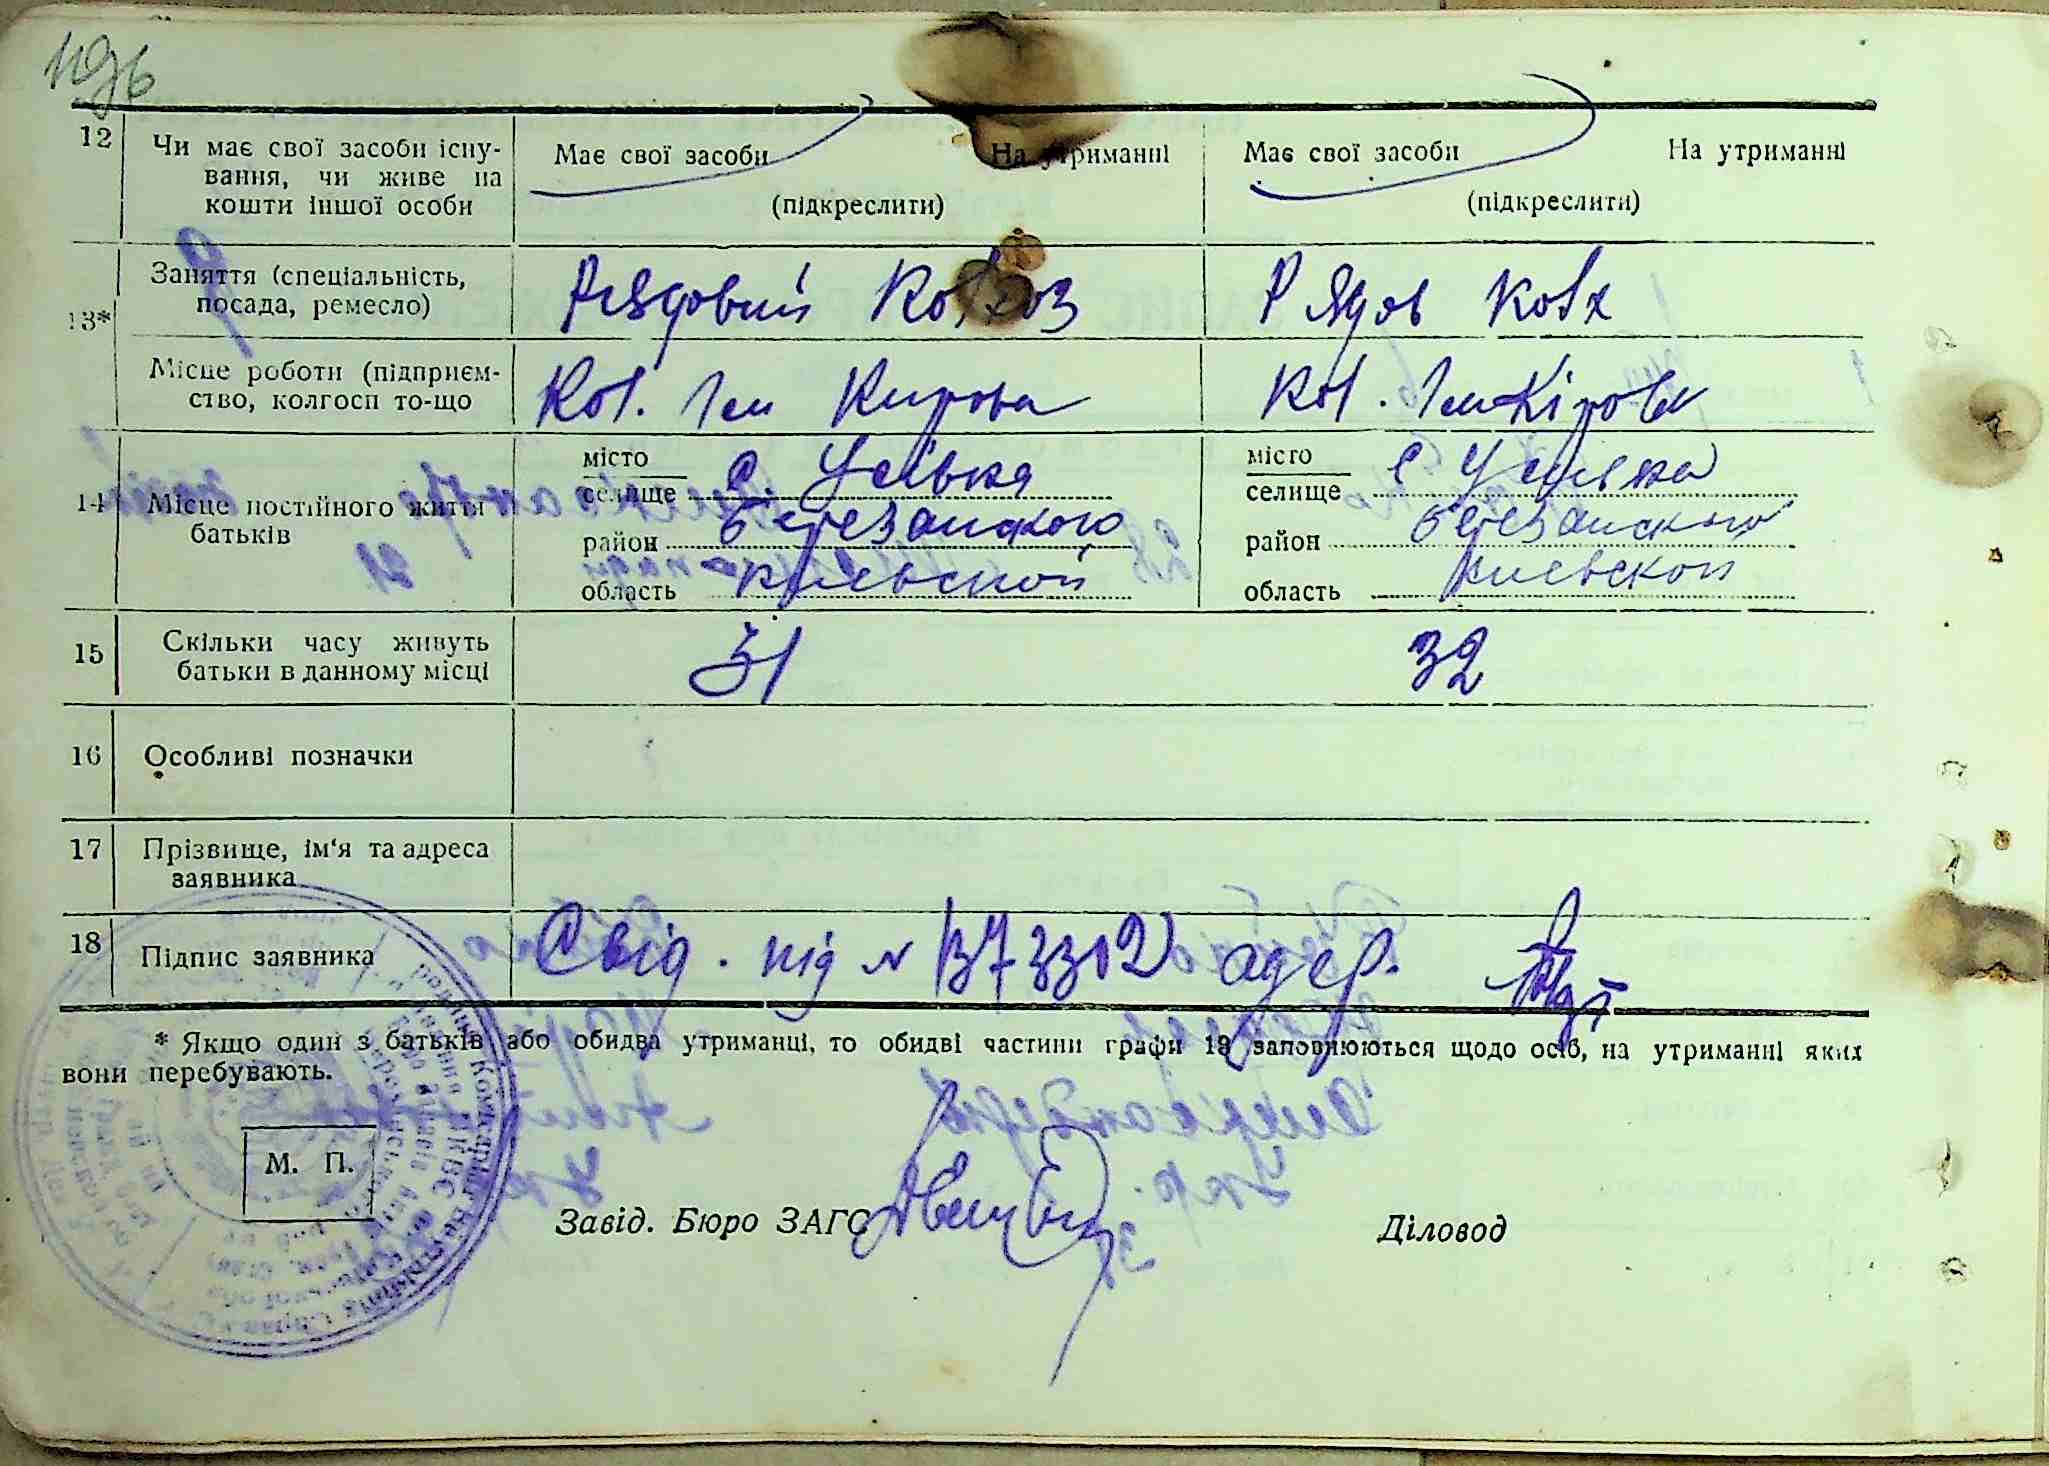 12 Чи має свої засоби існу-
вання, чи живе на
кошти іншої особи
Має свої засоби На утриманні
(підкреслити)
Має свої засоби На утриманні
(підкреслити)
13* Заняття (спеціальність,
посада, ремесло)
Рядовий Колхоз
Рядов Колх
Місце роботи (підприєм-
ство, колгосп то-що
Кол. Iм Кирова
Кол. Iм Кірова
14 Місце постійного життя
батьків
місто
селище с. Усівка
район Березанского
область Киевской
місто
селище с Усивка
район Березанского
область Киевской
15 Скільки часу живуть
батьки в данному місці
31
32
16 Особливі позначки
17 Прізвище, ім'я та адреса
заявника
18 Підпис заявника
Свід. під №
* Якщо один з батьків або обидва утриманці, то обидві частини графи 13 заповнюються щодо осіб, на утриманні яких
вони перебувають.
М. П.
Завід. Бюро ЗАГС
Діловод